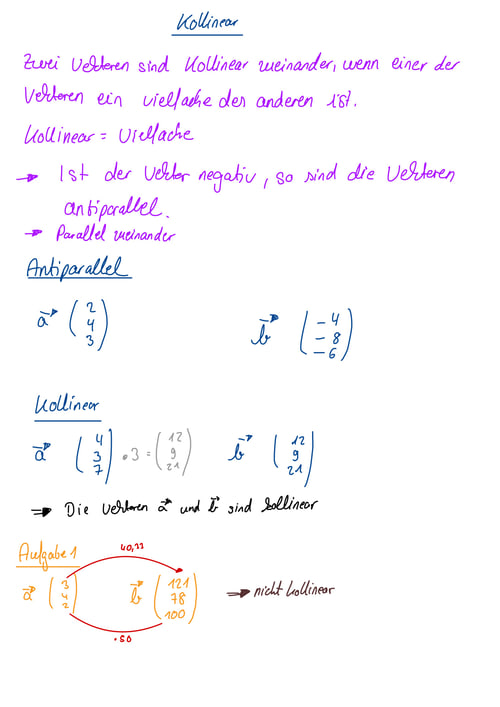 Kollinear
Zwei Vektoren sind Kollinear zueinander, wenn einer der
Vektoren ein vielfache des anderen ist.
Kollinear = Vielfache
→ Ist der Vektor negativ, so sind die Vektoren
antiparallel.
→ Parallel zueinander
Antiparallel
a→ (2 4 3) b→ (-4 -8 -6)
Kollinear
a→ (4 3 7) · 3 = (12 9 21) b→ (12 9 21)
⇒ Die Vektoren a→ und b→ sind kollinear
Aufgabe 1
40,33
a→ (3 4 2) b→ (121 78 100) ⇒ nicht kollinear
· 50